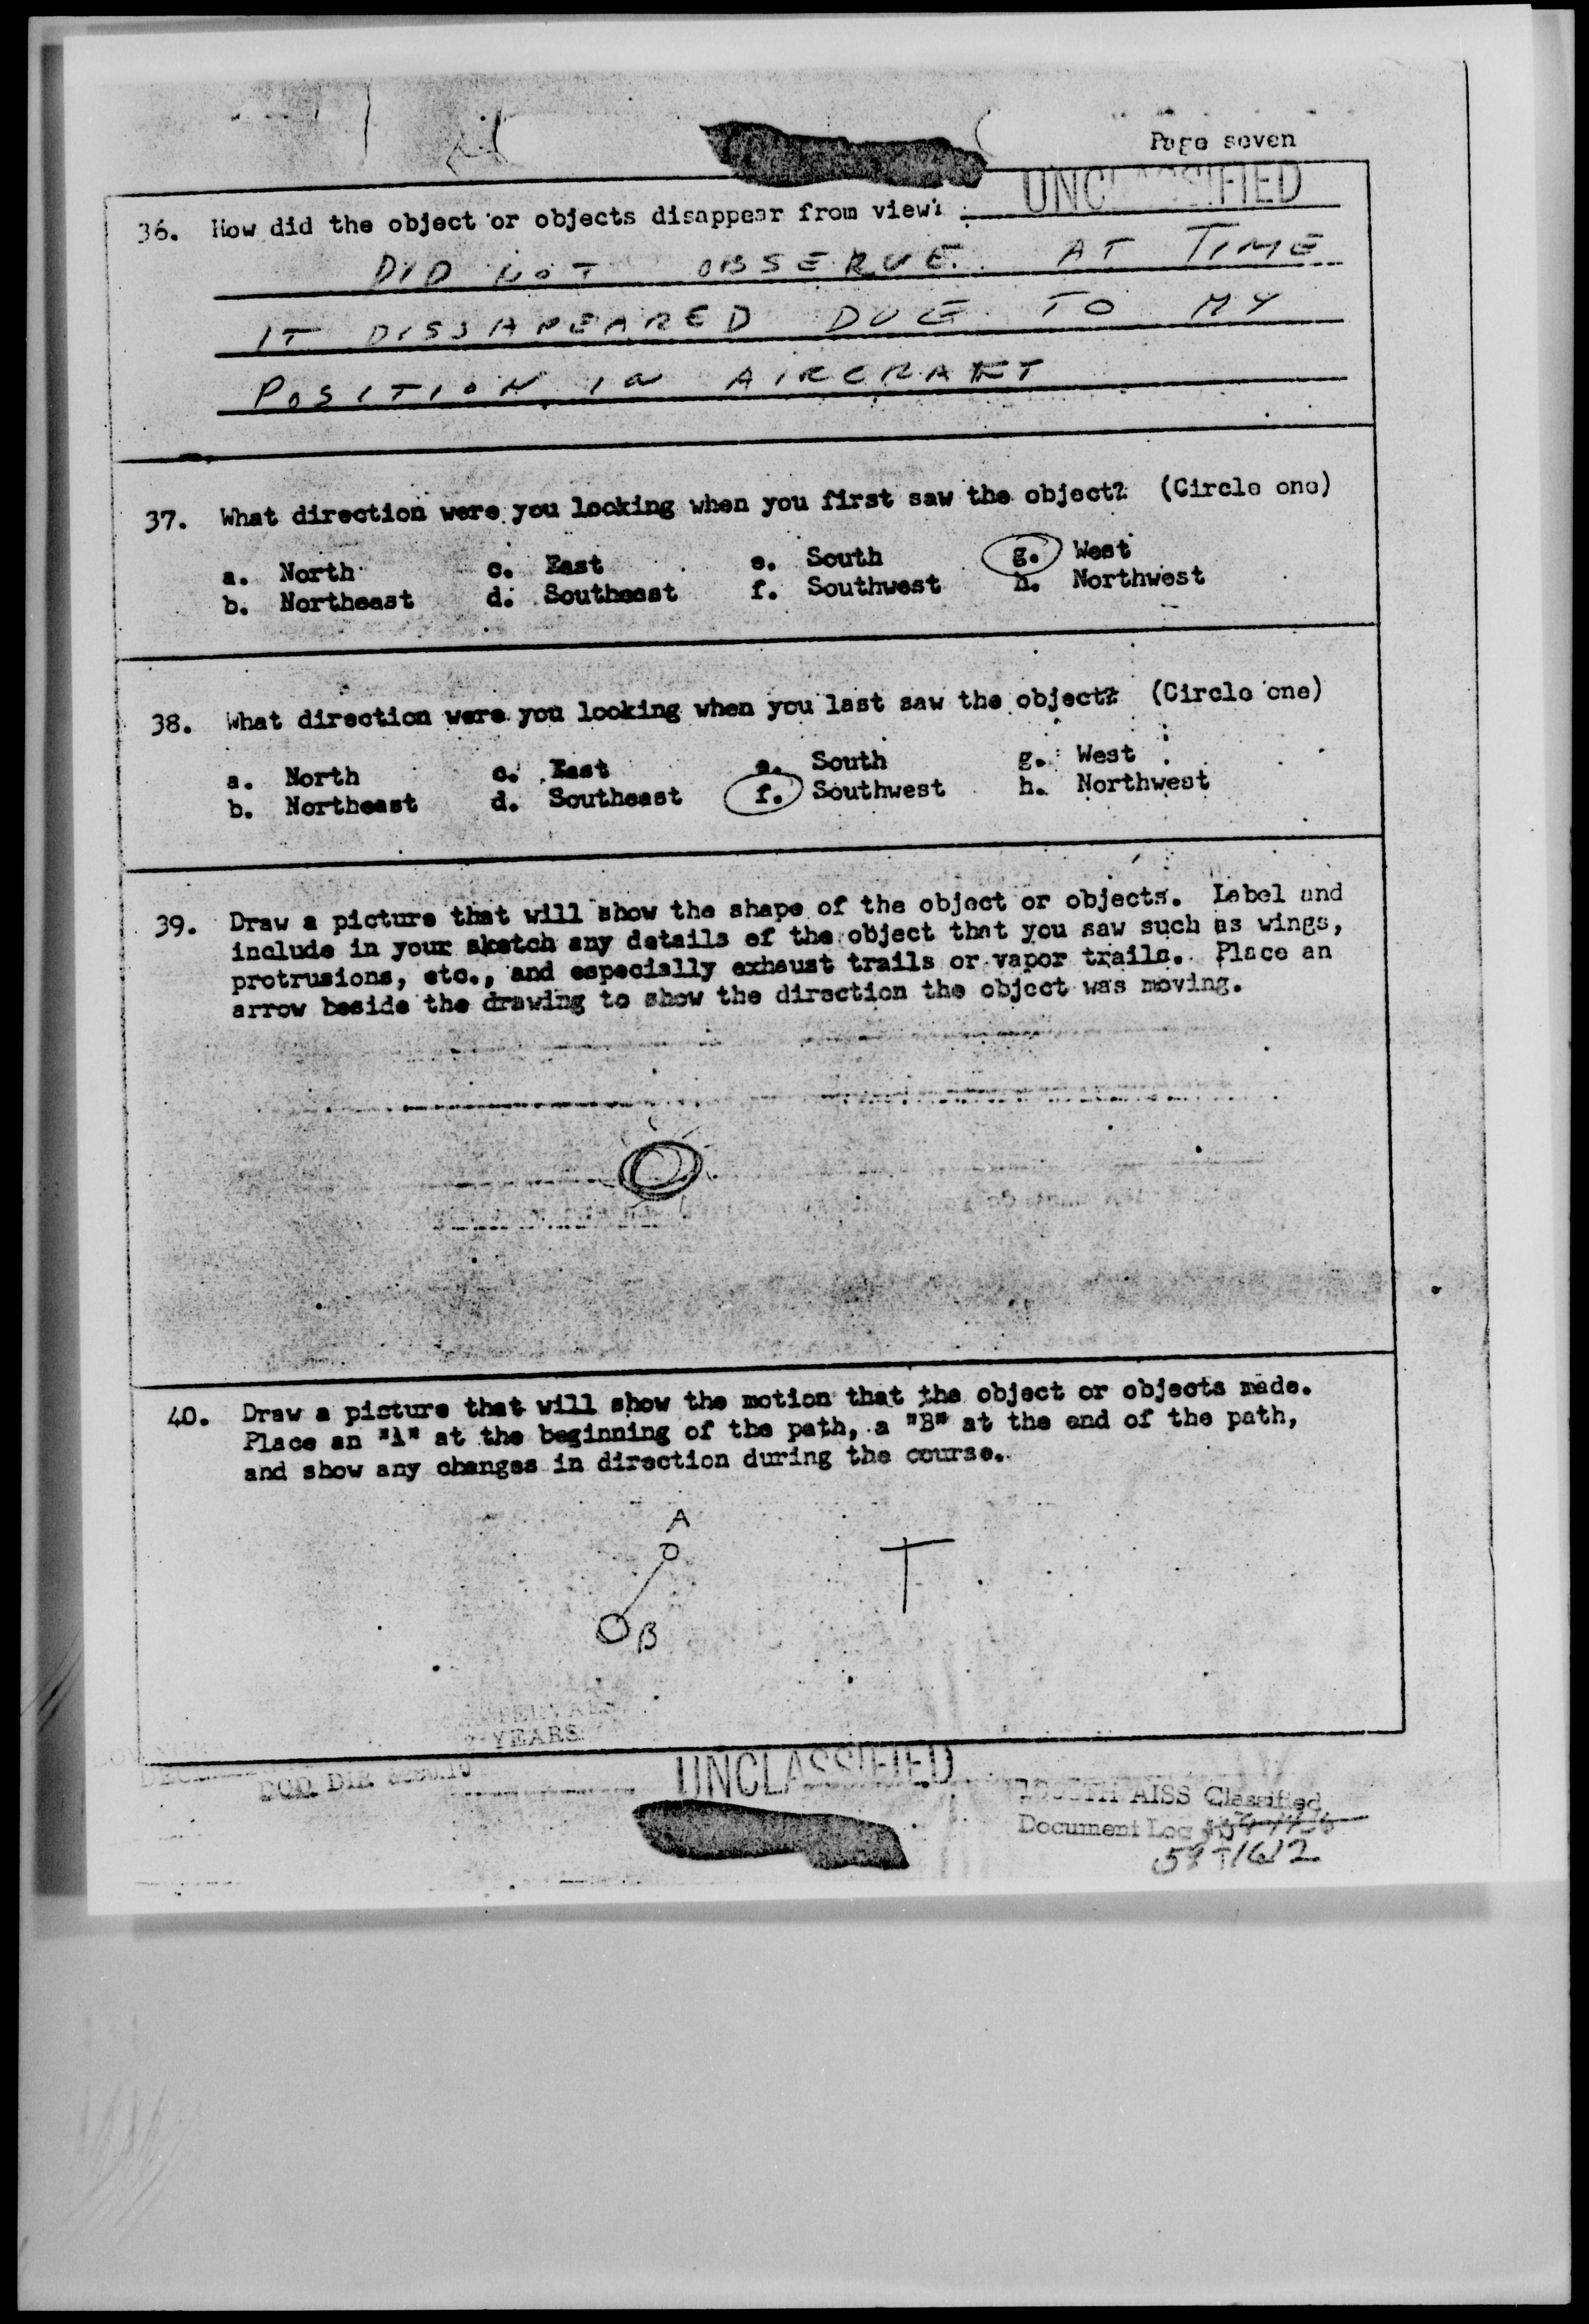 Page seven
UNCLASSIFIED
36. How did the object or objects disappear from view?
DID NOT OBSERVE AT TIME
IT DISSAPEARED DUE TO MY
POSITION IN AIRCRAFT
37. What direction were you looking when you first saw the object? (Circle one)
a. North c. East e. South g. West
b. Northeast d. Southeast f. Southwest h. Northwest
38. What direction were you looking when you last saw the object? (Circle one)
a. North c. East e. South g. West
b. Northeast d. Southeast f. Southwest h. Northwest
39. Draw a picture that will show the shape of the object or objects. Label and
include in your sketch any details of the object that you saw such as wings,
protrusions, etc., and especially exhaust trails or vapor trails. Place an
arrow beside the drawing to show the direction the object was moving.
40. Draw a picture that will show the motion that the object or objects made.
Place an "A" at the beginning of the path, a "B" at the end of the path,
and show any changes in direction during the course.
A
B
YEARS
DOD DIR 5200.10
UNCLASSIFIED
AISS Classified
Document Log